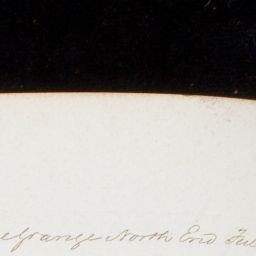 elgrange North End Ful